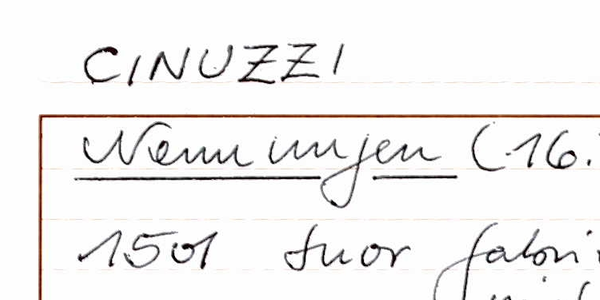 CINUZZI
Nennungen (16.
1501 suor fabri